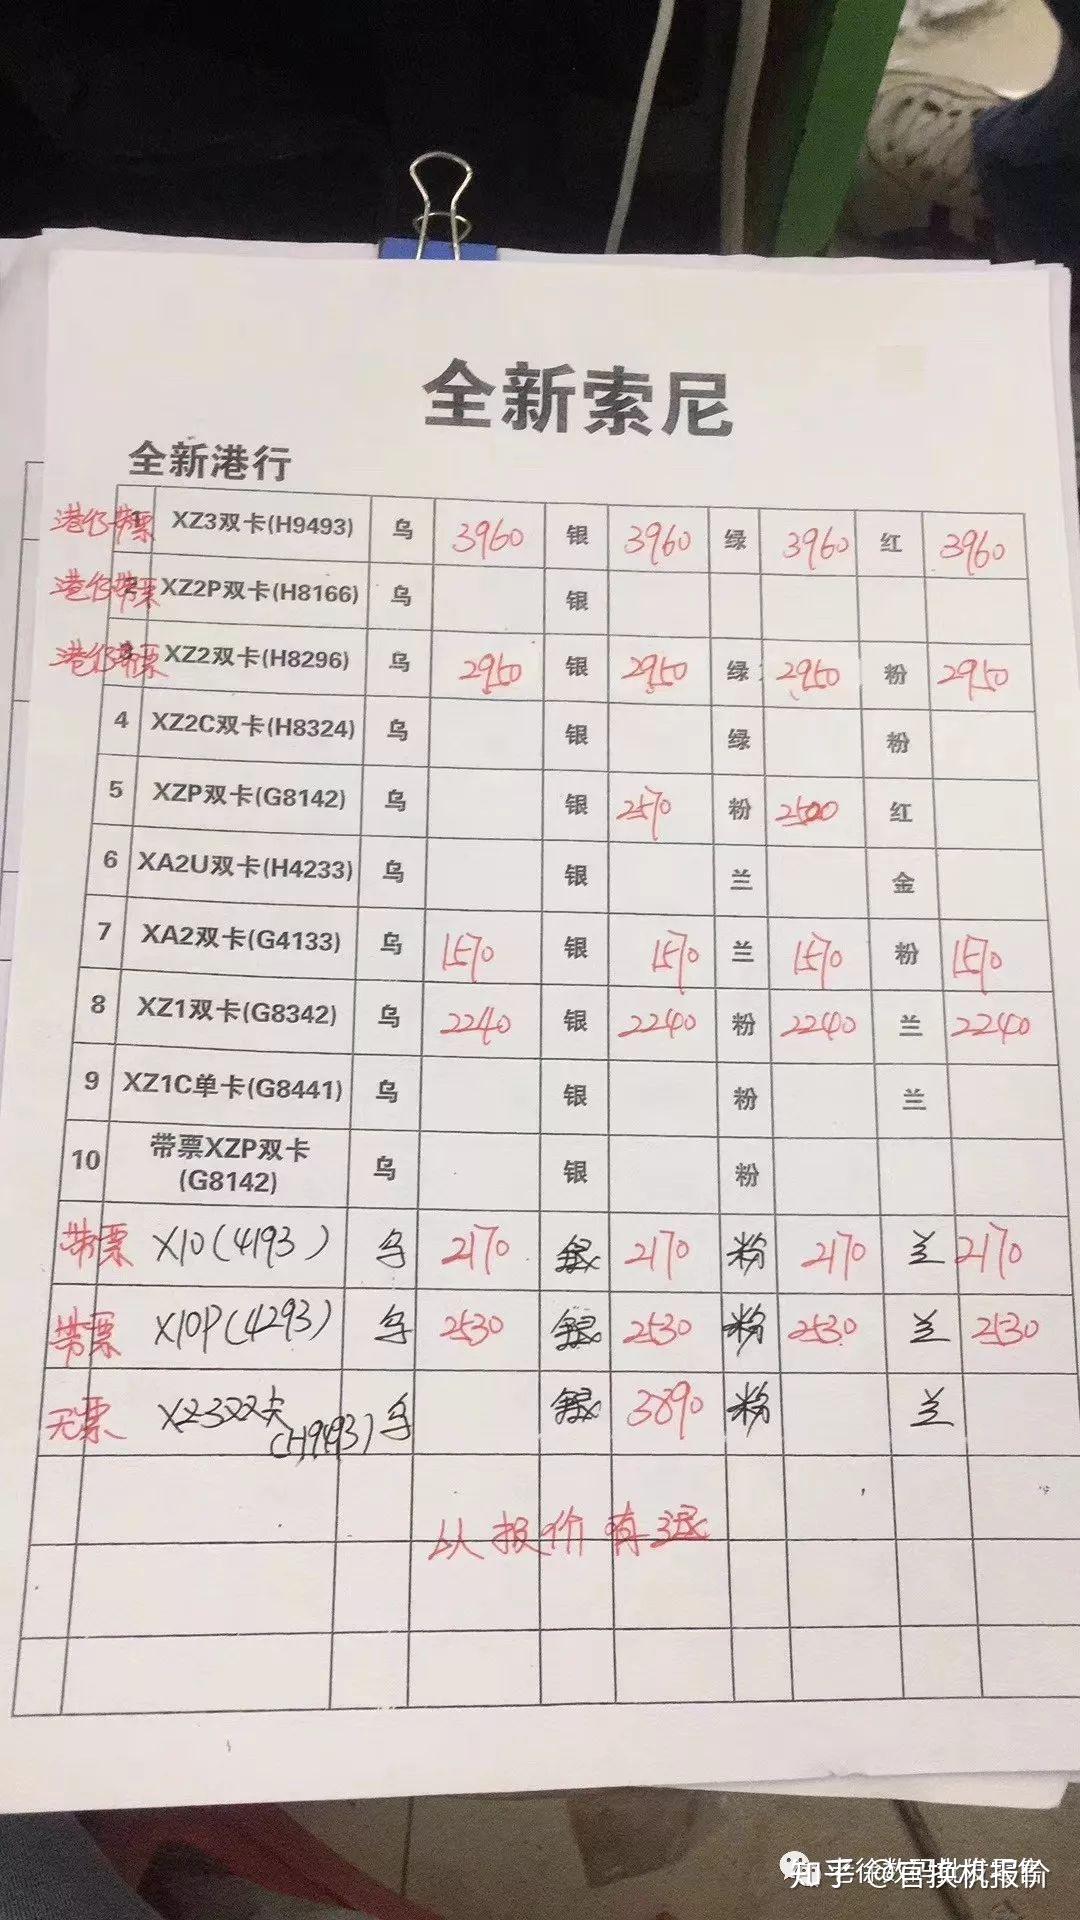 全新索尼
全新港行
港行带票 XZ3双卡(H9493) 乌 3960 银 3960 绿 3960 红 3960
港行带票 XZ2P双卡(H8166) 乌 银
港行带票 XZ2双卡(H8296) 乌 2950 银 2950 绿 2950 粉 2950
4 XZ2C双卡(H8324) 乌 银 绿 粉
5 XZP双卡(G8142) 乌 银 2570 粉 2500 红
6 XA2U双卡(H4233) 乌 银 兰 金
7 XA2双卡(G4133) 乌 1570 银 1570 兰 1570 粉 1570
8 XZ1双卡(G8342) 乌 2240 银 2240 粉 2240 兰 2240
9 XZ1C单卡(G8441) 乌 银 粉 兰
10 带票XZP双卡 乌 银 粉
(G8142)
带票 X10(4193) 乌 2170 银 2170 粉 2170 兰 2170
带票 X10P(4293) 乌 2530 银 2530 粉 2530 兰 2530
无票 XZ3双卡 乌 银 3890 粉 兰
(H9493)
以报价有退
知乎 @官换机报价